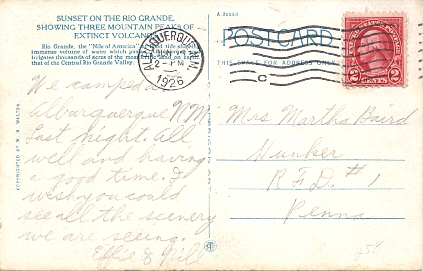 SUNSET ON THE RIO GRANDE,
SHOWING THREE MOUNTAIN PEAKS OF
EXTINCT VOLCANO
Rio Grande, the "Nile of America"
Immense volume of water which
irrigates thousands of acres of the most
that of the Central Rio Grande Valley.
POST CARD
THIS SPACE FOR ADDRESS ONLY
ALBUQUERQUE
1926
C
2 CENTS 2
COPYRIGHTED BY W. R. WALTON
We camped a
Alburquerque N.M.
Last night. All
well and having
a good time. I
wish you could
see all the scenery
we are seeing.
Effie & Will
Mrs Martha Baird
Hunker
R.F.D. #1
Penna